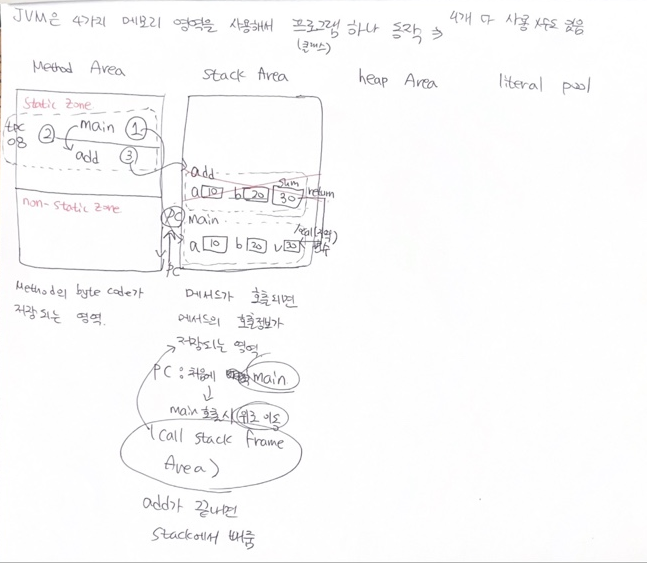 JVM은 4가지 메모리 영역을 사용해서 프로그램 하나 동작 ⇒ 4개 다 사용 할수도 있음
(클래스)
Method Area
Stack Area
heap Area
literal pool
Static Zone
TPC
08
② main ①
add ③
non-static zone
add
sum
a 10 b 20 30 return
PC main
local(지역)
변수
a 10 b 20 v 30
PC
Method의 byte code가
저장되는 영역.
메서드가 호출되면
메서드의 호출정보가
저장되는 영역
PC : 처음에 main
↓
main 호출시 위로 이동
(call stack frame
Area)
add가 끝나면
Stack에서 빠짐